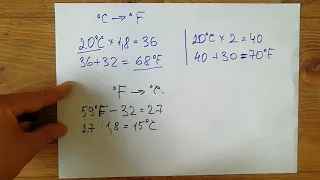 °C → °F
20°C × 1,8 = 36
36 + 32 = 68°F
20°C × 2 = 40
40 + 30 = 70°F
°F → °C
59°F - 32 = 27
27 : 1,8 = 15°C